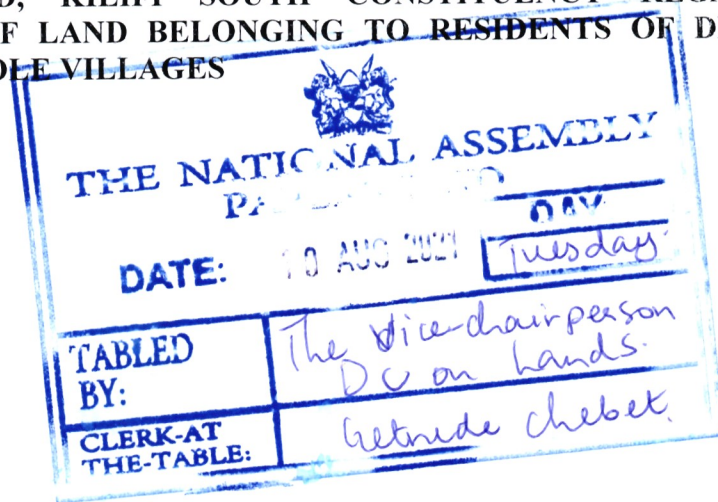 KILIFI SOUTH CONSTITUENCY
F LAND BELONGING TO RESIDENTS OF D
VILLAGES
THE NATIONAL ASSEMBLY
DATE: 10 AUG 2021
DAY
Tuesday
TABLED BY:
The Vice-chairperson
DC on Lands.
CLERK-AT THE-TABLE:
Getrude Chebet.